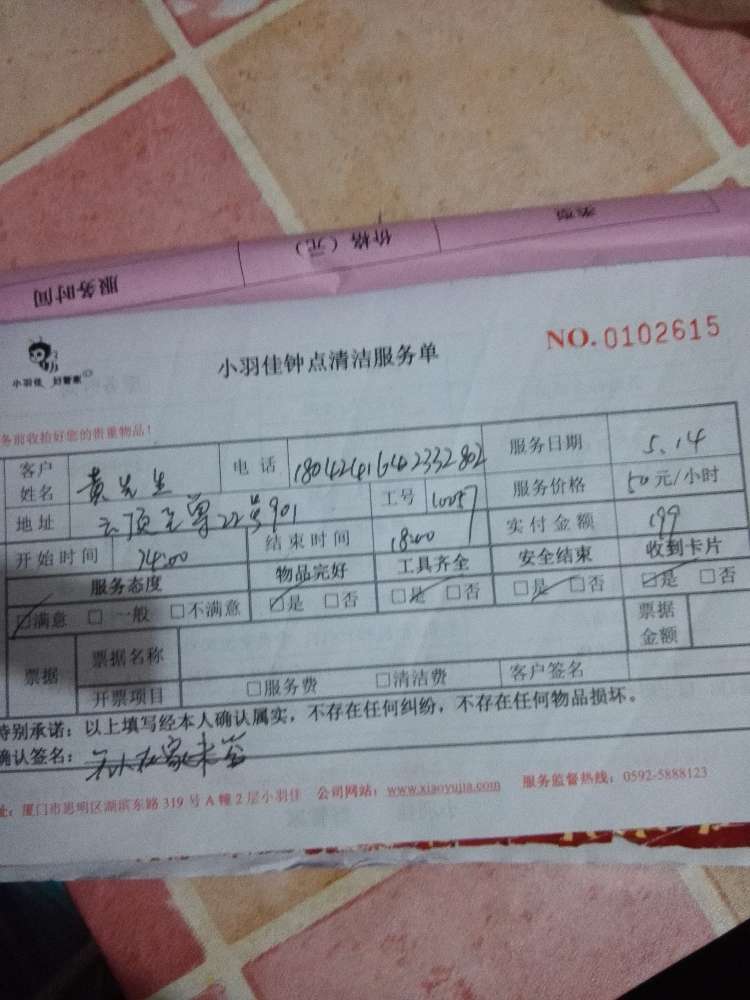 类型 价格（元） 服务时间
小羽佳 好管家
小羽佳钟点清洁服务单
NO.0102615
务前收拾好您的贵重物品！
客户姓名 黄先生 电话 1804241642332802 服务日期 5.14
地址 云顶至尊22号901 工号 10057 服务价格 50元/小时
开始时间 14:00 结束时间 18:00 实付金额 199
服务态度 物品完好 工具齐全 安全结束 收到卡片
☑满意 □一般 □不满意 ☑是 □否 □是 ☑否 ☑是 □否 ☑是 □否
票据 票据名称 票据金额
开票项目 □服务费 □清洁费 客户签名
特别承诺：以上填写经本人确认属实，不存在任何纠纷，不存在任何物品损坏。
确认签名：无人在家未签
址：厦门市思明区湖滨东路319号A幢2层小羽佳 公司网站：www.xiaoyujia.com 服务监督热线：0592-5888123